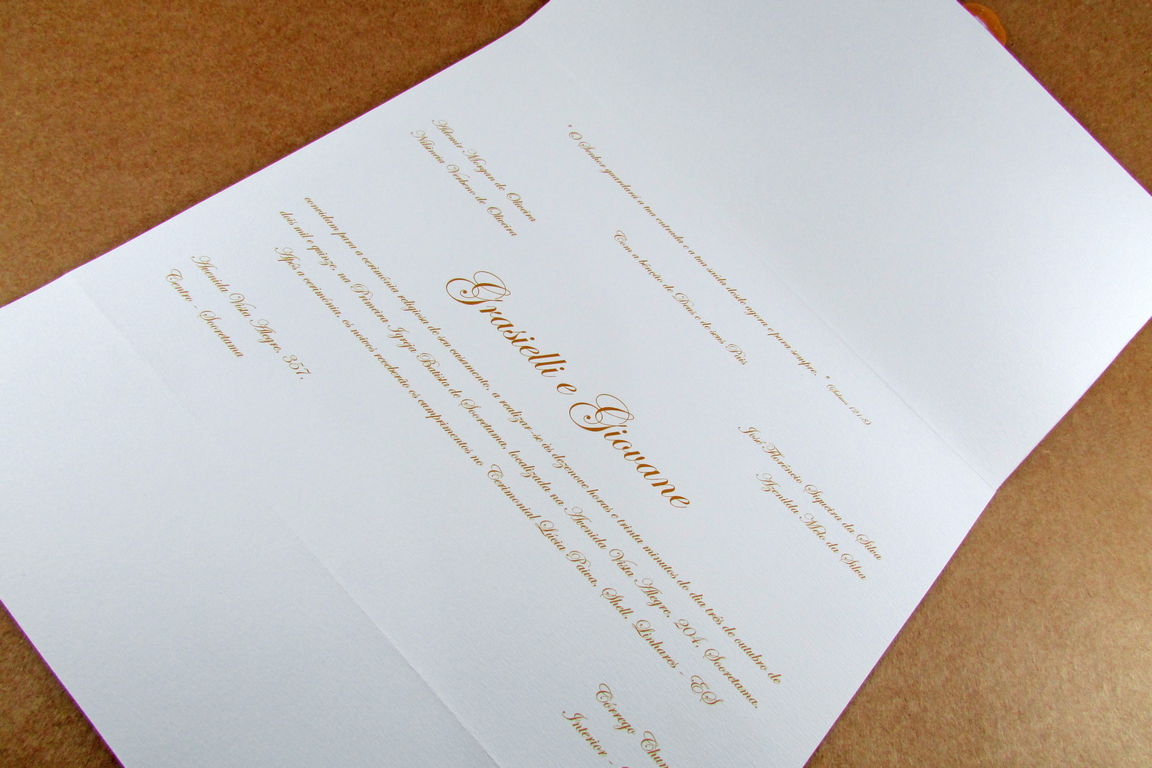 " O Senhor guardará a tua entrada e a tua saída desde agora e para sempre. " (Salmos 121.8)
Com a bênção de Deus e de seus Pais
Ademir Morgan de Oliveira
Nilsineia Verbeno de Oliveira
José Florêncio Siqueira da Silva
Azenilda Melo da Silva
Grasielli e Giovane
convidam para a cerimônia religiosa de seu casamento, a realizar-se às dezenove horas e trinta minutos do dia três de outubro de
dois mil e quinze, na Primeira Igreja Batista de Sooretama, localizada na Avenida Vista Alegre, 204, Sooretama.
Após a cerimônia, os noivos receberão os cumprimentos no Cerimonial Lúcia Paiva, Shell, Linhares - ES
Avenida Vista Alegre, 357,
Centro - Sooretama
Córrego
Interior -